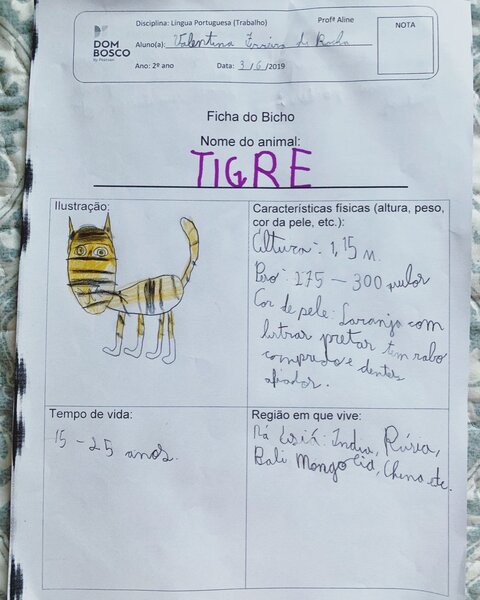 Disciplina: Língua Portuguesa (Trabalho)
Profª Aline
NOTA
DOM
BOSCO
by Pearson
Aluno(a): Valentina da Rocha
Ano: 2º ano Data: 3/6/2019
Ficha do Bicho
Nome do animal:
TIGRE
Ilustração:
Características físicas (altura, peso,
cor da pele, etc.):
Altura: 1,15 m.
Peso: 175 - 300 quilos
Cor de pele: Laranja com
listras pretas tem rabo
comprido e dentes
afiados.
Tempo de vida:
15 - 25 anos.
Região em que vive:
Na Ásia: Índia, Rúsia,
Bali Mongolia, China etc.